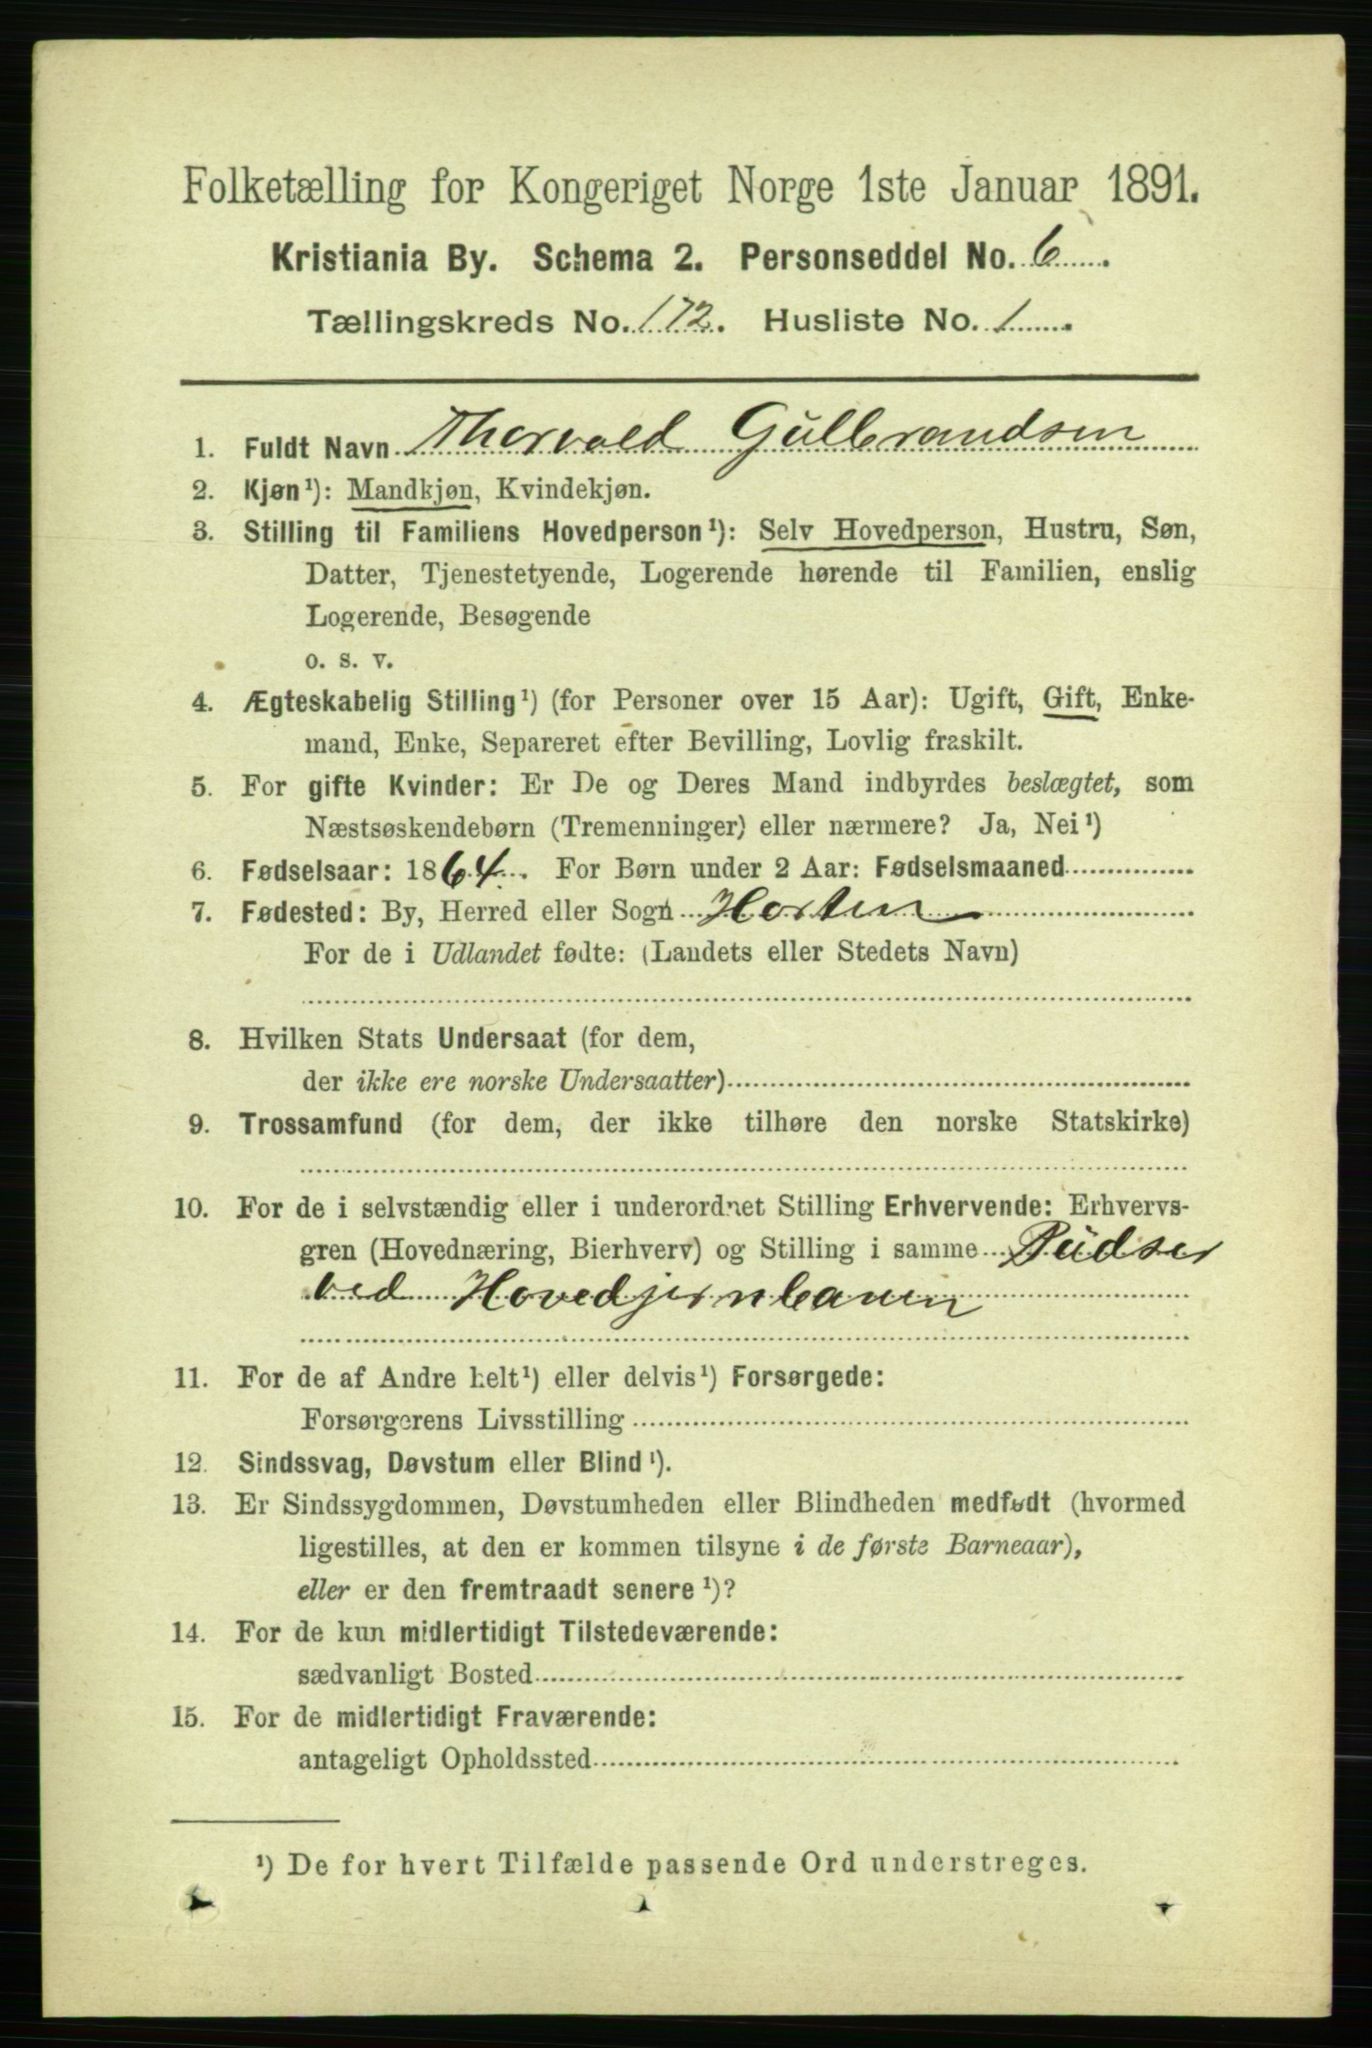 Folketælling for Kongeriget Norge 1ste Januar 1891.
Kristiania By. Schema 2. Personseddel No. 6
Tællingskreds No. 172. Husliste No. 1
1. Fuldt Navn Thorvald Gulbrandsen
2. Kjøn¹): Mandkjøn, Kvindekjøn.
3. Stilling til Familiens Hovedperson¹): Selv Hovedperson, Hustru, Søn,
Datter, Tjenestetyende, Logerende hørende til Familien, enslig
Logerende, Besøgende
o. s. v.
4. Ægteskabelig Stilling¹) (for Personer over 15 Aar): Ugift, Gift, Enke-
mand, Enke, Separeret efter Bevilling, Lovlig fraskilt.
5. For gifte Kvinder: Er De og Deres Mand indbyrdes beslægtet, som
Næstsøskendebørn (Tremenninger) eller nærmere? Ja, Nei¹)
6. Fødselsaar: 1864. For Børn under 2 Aar: Fødselsmaaned
7. Fødested: By, Herred eller Sogn Horten
For de i Udlandet fødte: (Landets eller Stedets Navn)
8. Hvilken Stats Undersaat (for dem,
der ikke ere norske Undersaatter)
9. Trossamfund (for dem, der ikke tilhøre den norske Statskirke)
10. For de i selvstændig eller i underordnet Stilling Erhvervende: Erhvervs-
gren (Hovednæring, Bierhverv) og Stilling i samme Pudser
ved Hovedjernbanen
11. For de af Andre helt¹) eller delvis¹) Forsørgede:
Forsørgerens Livsstilling
12. Sindssvag, Døvstum eller Blind¹).
13. Er Sindssygdommen, Døvstumheden eller Blindheden medfødt (hvormed
ligestilles, at den er kommen tilsyne i de første Barneaar),
eller er den fremtraadt senere¹)?
14. For de kun midlertidigt Tilstedeværende:
sædvanligt Bosted
15. For de midlertidigt Fraværende:
antageligt Opholdssted
¹) De for hvert Tilfælde passende Ord understreges.